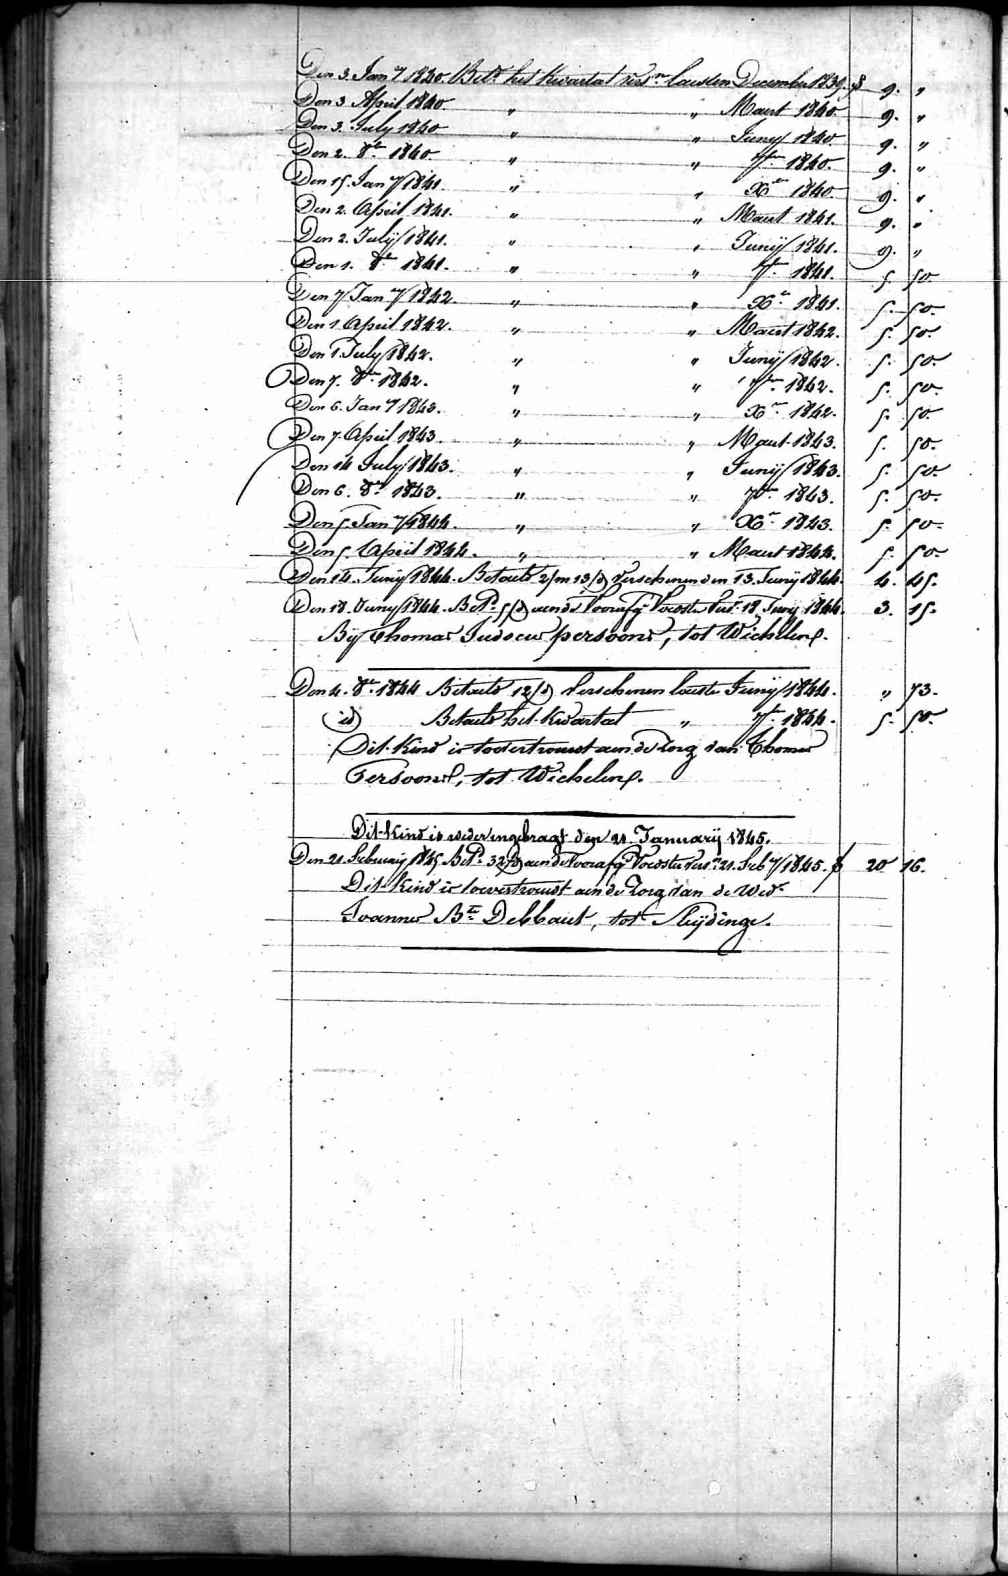 Den 3. Jany 1840. Betd het Kwartal versn laesten December 1839. f 9. "
Den 3 April 1840 " " Maert 1840. 9. "
Den 3. July 1840 " " Juny 1840. 9. "
Den 2. 8er 1840. " " 7er 1840. 9. "
Den 15. Jany 1841. " " Xer 1840. 9. "
Den 2. April 1841. " " Maert 1841. 9. "
Den 2. Julÿ 1841. " " Junÿ 1841. 9. "
Den 1. 8er 1841. " " 7er 1841. 5. 50.
Den 7 Jany 1842 " " Xer 1841. 5. 50.
Den 1. April 1842. " " Maert 1842. 5. 50.
Den 1. July 1842. " " Junÿ 1842. 5. 50.
Den 7. 8er 1842. " " 7er 1842. 5. 50.
Den 6. Jany 1843. " " Xer 1842. 5. 50.
Den 7. April 1843. " " Maert 1843. 5. 50.
Den 14 July 1843. " " Junÿ 1843. 5. 50.
Den 6. 8er 1843. " " 7er 1843. 5. 50.
Den 5 Jany 1844. " " Xer 1843. 5. 50.
Den 5. April 1844. " " Maert 1844. 5. 50.
Den 14. Junÿ 1844. Betaelt 2/m 13/d Verschenen den 13. Junÿ 1844. 4. 45.
Den 18. Juny 1844. Betd 5/d aen de Voorafg Voedster Vers 18 Junÿ 1844. 3. 15.
Bÿ Thomas Judocus persoons, tot Wichelen.
Den 4. 8er 1844 Betaelt 12/d Verschenen laeste Junÿ 1844. " 73.
id Betaelt het Kwartal " 7er 1844. 5. 50.
Dit Kind is toevertrouwt aen de Zorg van Thomas
Persoons, tot Wichelen.
Dit Kind is weder ingebragt den 21. Januarÿ 1845.
Den 21. Februarÿ 1845 Betd 32/d aen de Voorafg Voedster vers 21. Feby 1845. f 20 16.
Dit Kind is toevertrouwt aen de Zorg van de Wede
Joannes Bte Debbaut, tot Sleÿdinge.